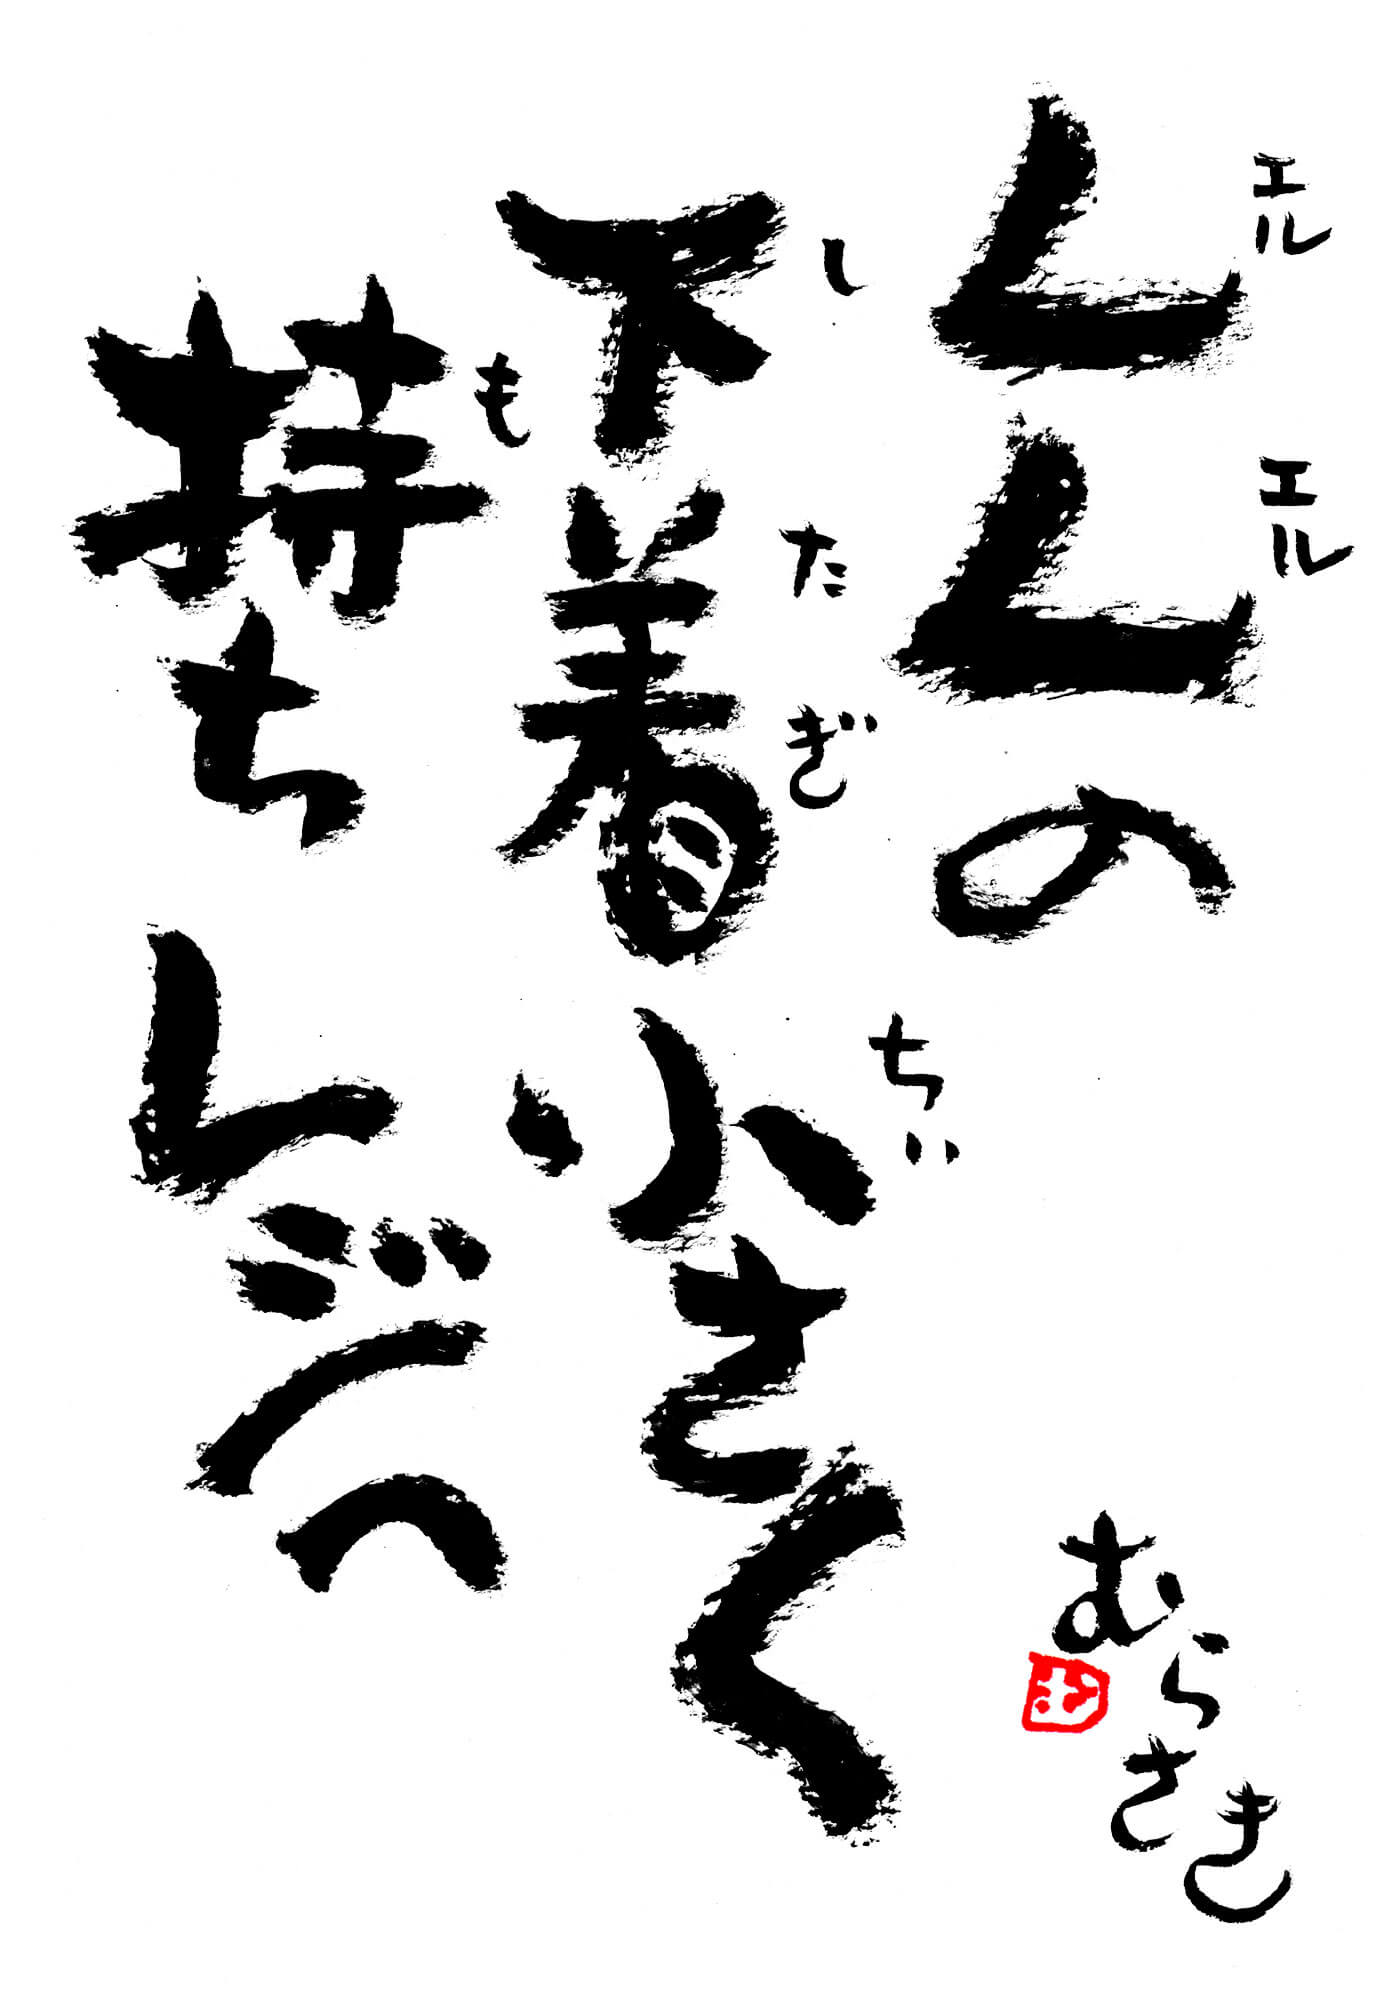 LLの
エル
エル
下着小さく
したぎ
ちい
持ちレジへ
も
むらさき